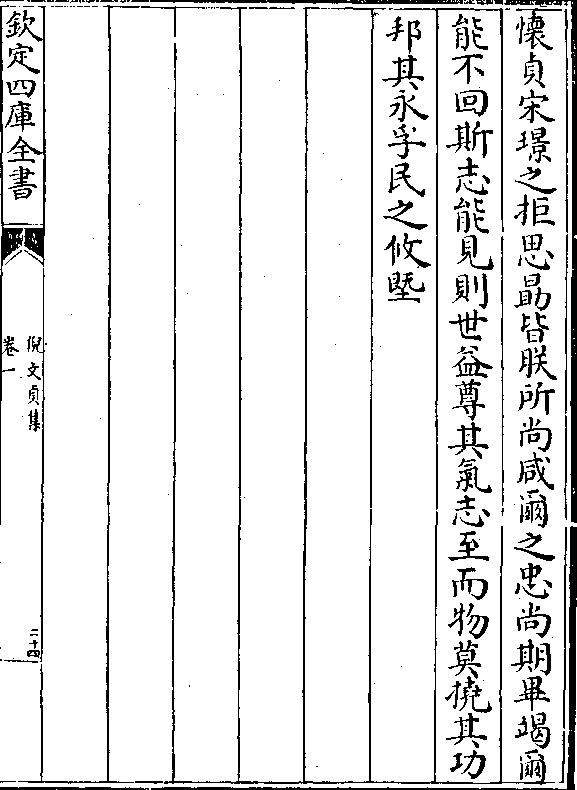 懷貞宋璟之拒思勗皆朕所尚咸爾之忠尚期畢竭爾
能不回斯志能見則世益尊其氣志至而物莫撓其功
邦其永孚民之攸塈
欽定四庫全書
倪文貞集
卷一
二十四